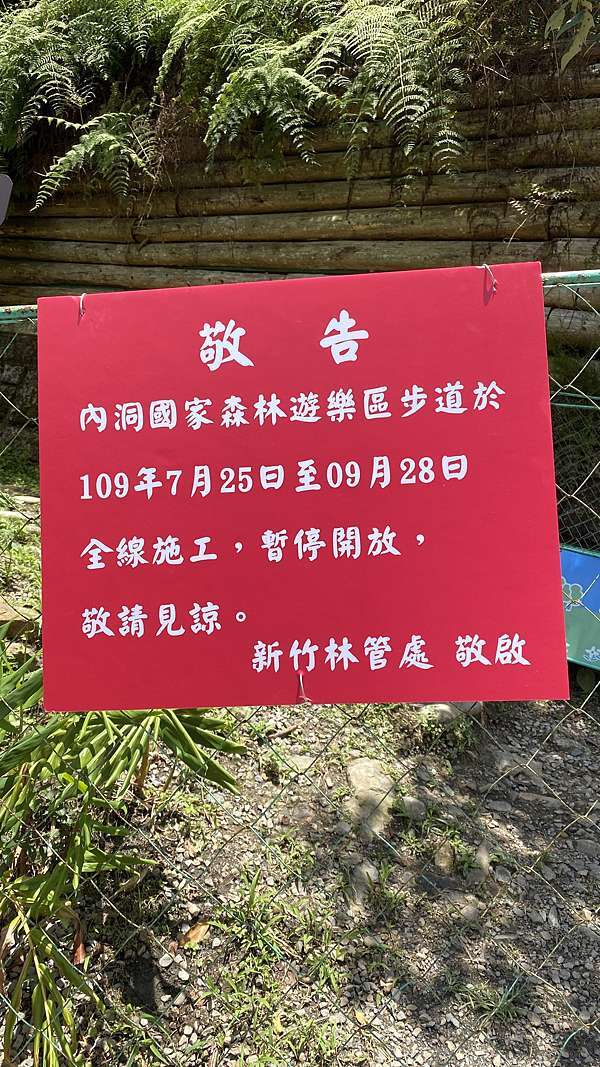 敬 告
內洞國家森林遊樂區步道於
109年7月25日至09月28日
全線施工，暫停開放，
敬請見諒。
新竹林管處 敬啟